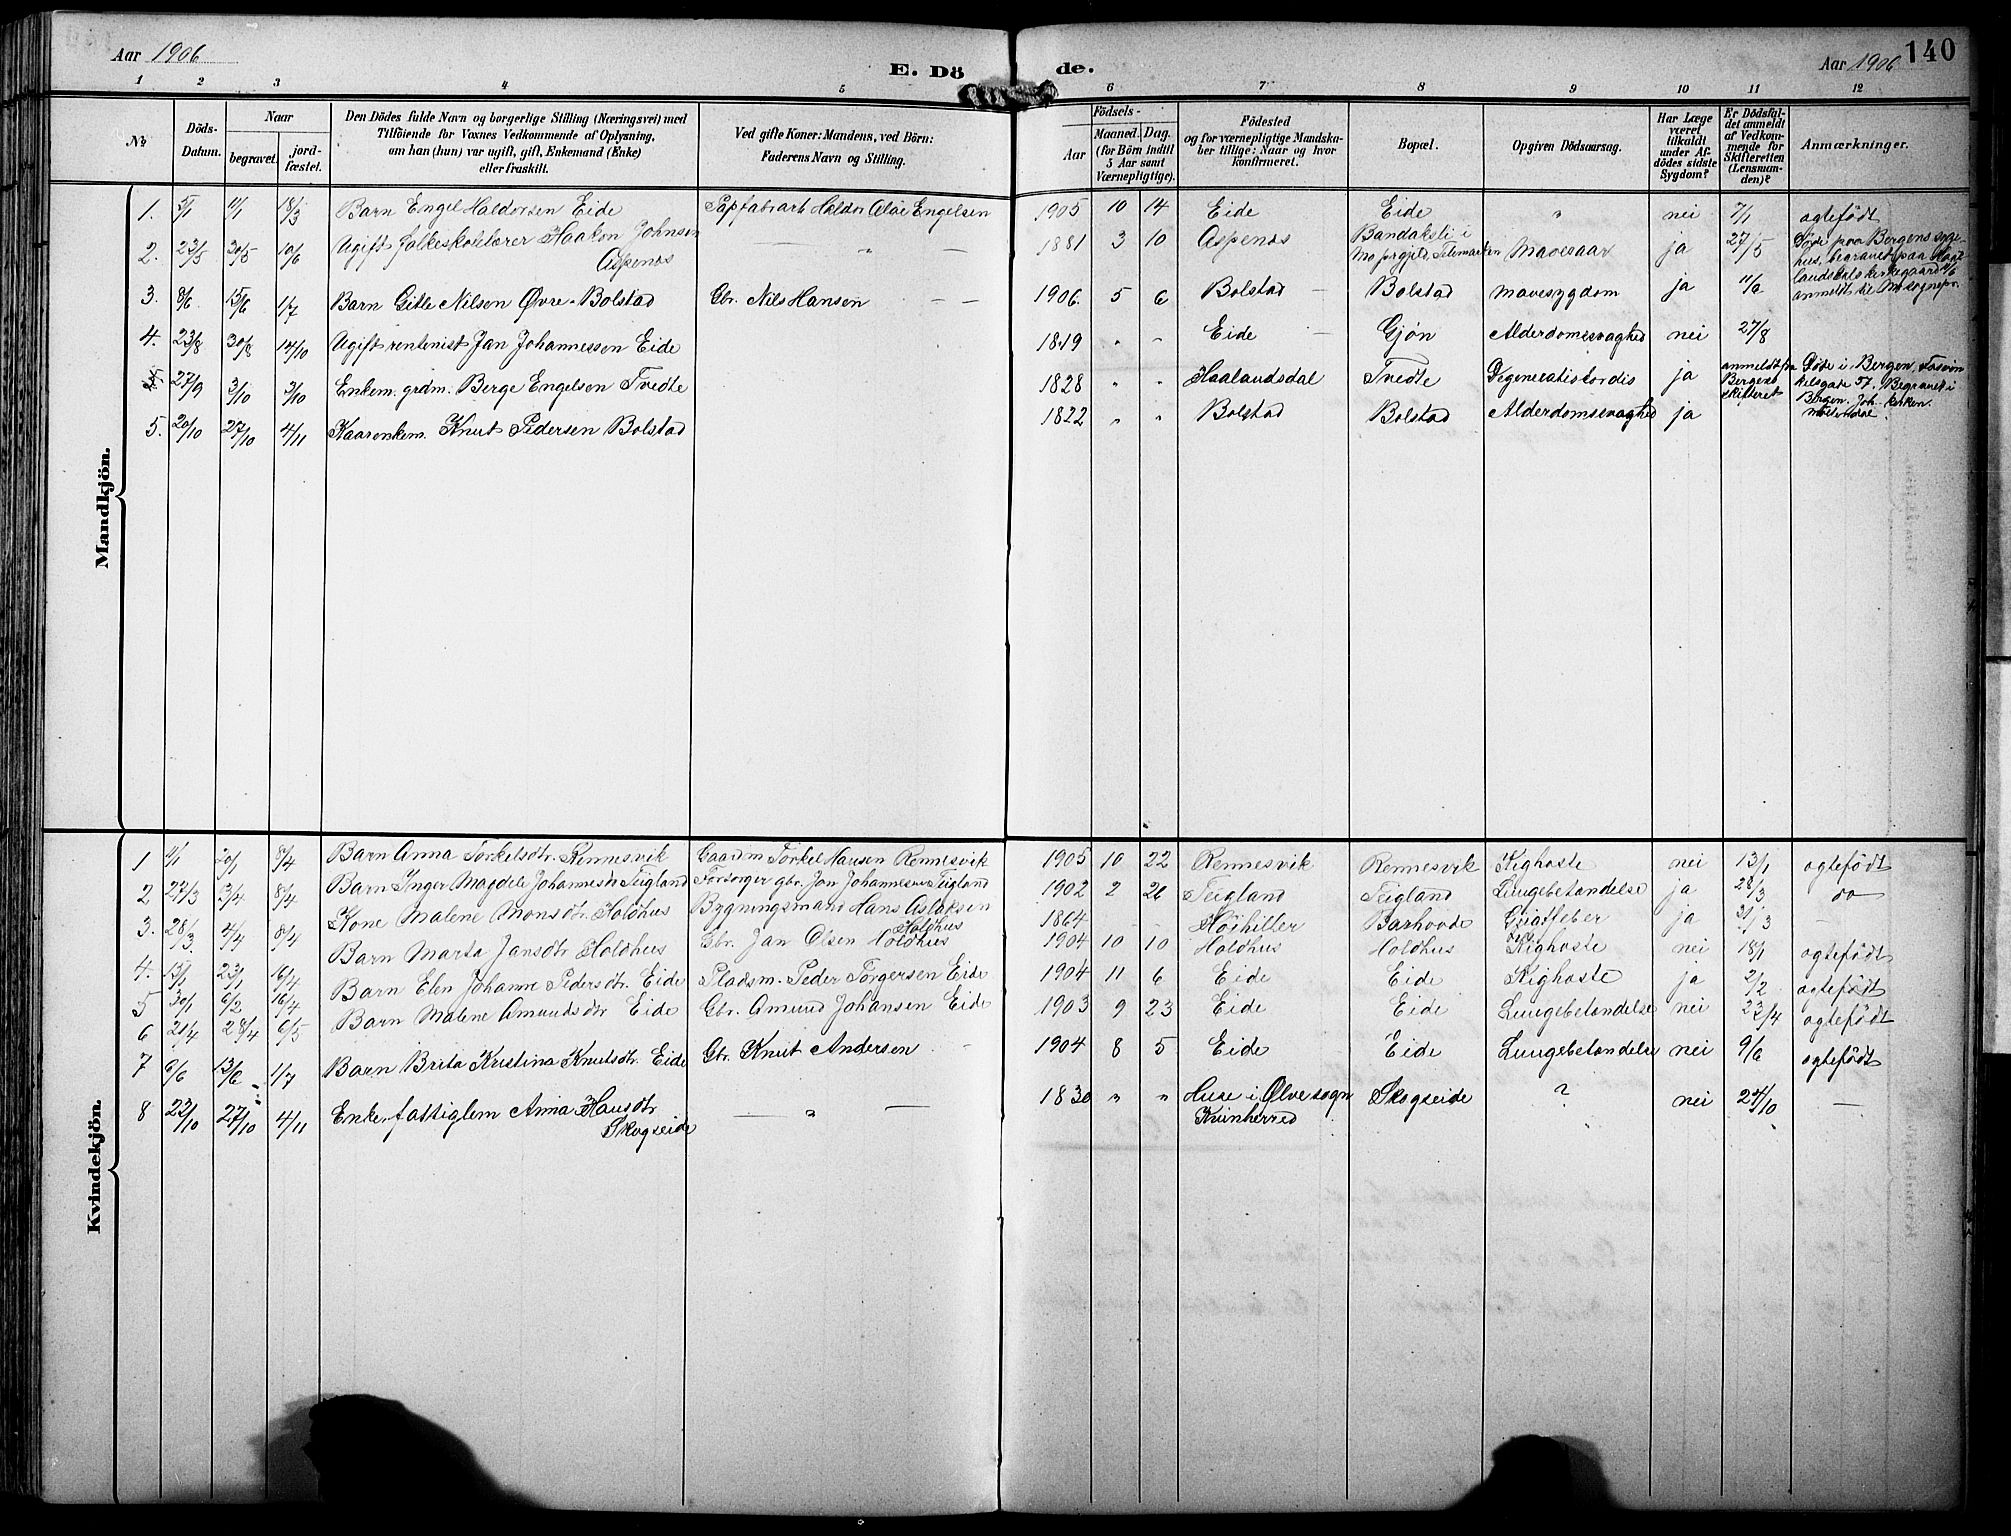 Aar 1906
E. Dö de.
Aar 1906 140
1 2 3 4 5 6 7 8 9 10 11 12
No
Döds-Datum.
Naar
begravet.
jordfæstet.
Den Dödes fulde Navn og borgerlige Stilling (Næringsvei) med
Tilföiende for Voxnes Vedkommende af Oplysning,
om han (hun) var ugift, gift, Enkemand (Enke)
eller fraskilt.
Ved gifte Koner: Mandens, ved Börn:
Faderens Navn og Stilling.
Födsels-
Aar
Maaned. Dag.
(for Börn indtil
5 Aar samt
Værnepligtige).
Födested
og for værnepligtige Mandska-
ber tillige: Naar og hvor
konfirmeret.
Bopæl.
Opgiven Dödsaarsag.
Har Læge
været
tilkaldt
under Af-
dödes sidste
Sygdom?
Er Dödsfal-
det anmeldt
af Vedkom-
mende for
Skifteretten
(Lensman-
den)?
Anmærkninger.
Mandkjön.
1. 5/1 11/1 18/3 Barn Engel Haldorsen Eide Papfabrarb Haldor Olai Engelsen 1905 10 14 Eide Eide " nei 7/1 ægtefödt
2. 23/5 30/5 10/6 Ugift folkeskolelærer Haakon Johnsen Aspenes — " — 1881 3 10 Aspenes Bandaksli i Mo prgjeld, Telemarken Mavesaar ja 27/5 Döde paa Bergens syge-
hus, begravet paa
landsdals kirkegaard
anmeldt til Mo sognepr.
3. 8/6 15/6 1/7 Barn Gitle Nilsen Øvre-Bolstad Gbr. Nils Hansen — — 1906. 5 6 Bolstad — Bolstad Mavesygdom ja 11/6
4. 23/8 30/8 14/10 Ugift rentenist Jan Johannessen Eide 1819 " " Eide — Gjøn Alderdomssvaghed nei 27/8
27/9 3/10 3/10 Enkem. grdm. Berge Engelsen Tvedte 1828 " " Haalandsdal Tvedte Degeneratio cordis ja anmeldt fra Bergens skifteret Döde i Bergen,
57. Begravet i
Bergen. Joh. kirken.
5. 20/10 27/10 4/11 Kaarenkem. Knut Pedersen Bolstad 1822 " " Bolstad Bolstad Alderdomssvaghed ja
Kvindekjön.
1 20/1 8/4 Barn Anna Torkelsdtr. Rennesvik Gaardm Torkel Hansen Rennesvik 1905 10 22 Rennesvik Rennesvik Kighoste nei 13/1 ægtefödt
2 22/3 3/4 8/4 Barn Inger Magdele Johannesdtr Teigland Forsorger gbr. Jon Johannesen Teigland 1902 2 26 Teigland Teigland Lungebetændelse ja 28/3 do
3. 28/3 4/4 8/4 Kone Malene Monsdtr. Holdhus Bygningsmand Hans Aslaksen Holdhus 1864 — — Höihiller Barhovde ja 31/3
4. 15/1 23/1 16/4 Barn Marta Jansdtr Holdhus Gbr. Jan Olsen Holdhus 1904 10 10 Holdhus Holdhus Kighoste nei 18/1 ægtefödt
5 30/1 6/2 16/4 Barn Elen Johanne Pedersdtr. Eide Pladsm. Peder Torgersen Eide 1904 11 6 Eide Eide Kighoste ja 2/2 ægtefödt
6 21/4 28/4 6/5 Barn Malene Amundsdtr Eide Gbr. Amund Johansen Eide 1903 9 23 Eide Eide Lungebetændelse nei 23/4 ægtefödt
7 6/6 13/6 1/7 Barn Brita Kristina Knutsdtr. Eide Gbr. Knut Andersen 1904 8 5 Eide Eide Lungebetændelse nei 9/6 ægtefödt
8 23/10 27/10 4/11 Enke. fattiglem Anna Hansdtr. Skogseide — " — 1830 " " Huse i Ølve sogn Kvinherred Skogseide ? nei 24/10 —